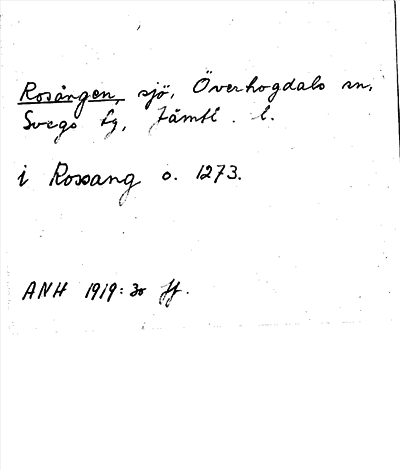 Rosången, sjö, Överhogdals sn,
Svegs tg, Jämtl. l.
i Rossang o. 1273.
ANH 1919: 30 ff.